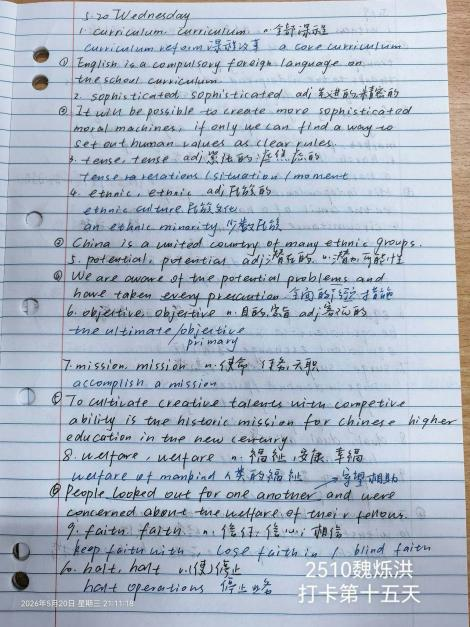 5.20 Wednesday
1. curriculum, curriculum n.全部课程
curriculum reform 课程改革 a core curriculum
① English is a compulsory foreign language on
the school curriculum
2. sophisticated sophisticated adj 先进的 精密的
② It will be possible to create more sophisticated
moral machines, if only we can find a way to
set out human values as clear rules.
3. tense, tense adj 紧张的 焦虑的
tense relations / situation / moment
4. ethnic, ethnic adj 民族的
ethnic culture 民族文化
an ethnic minority 少数民族
③ China is a united country of many ethnic groups.
5. potential, potential adj 潜在的 n.潜力 可能性
④ We are aware of the potential problems and
have taken every precaution 全面的 措施
6. objective, objective n.目的 adj 客观的
the ultimate / objective
primary
7. mission, mission n.使命 任务 天职
accomplish a mission
⑤ To cultivate creative talents with competive
ability is the historic mission for Chinese higher
education in the new century.
8. welfare, welfare n. 福祉, 安康, 幸福
welfare of mankind 人类的福祉 守望相助
⑥ People looked out for one another and were
concerned about the welfare of their fellows.
9. faith, faith n. 信任; 信心; 相信
keep faith with, lose faith in / blind faith
10. halt, halt v.(使)停止
halt operations 停止
2510魏烁洪
打卡第十五天
2026年5月20日 星期三 21:11:18